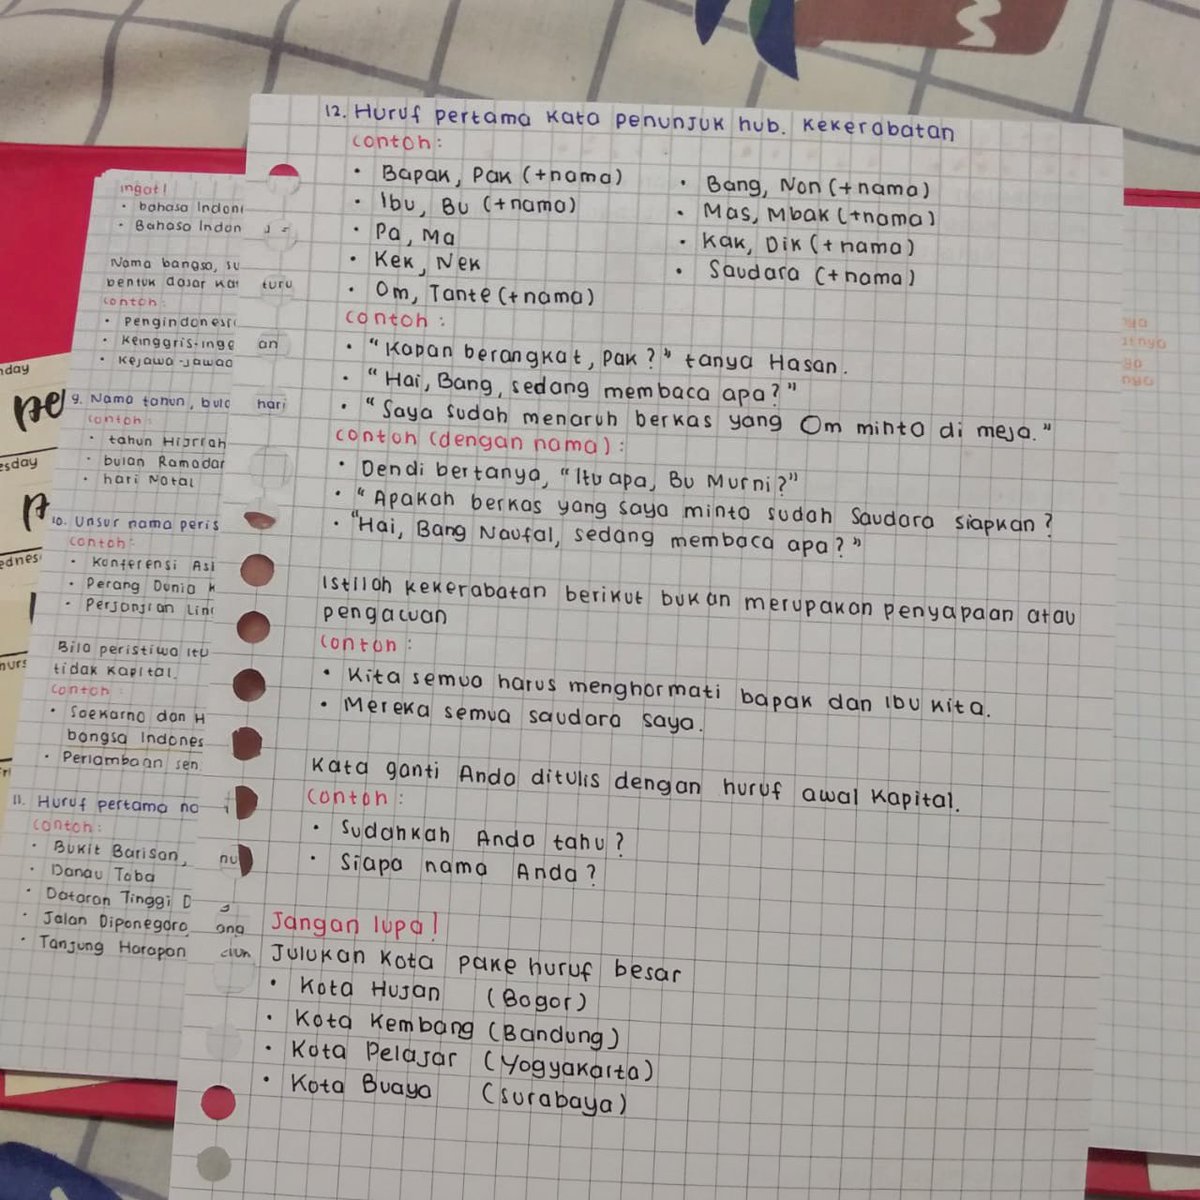 12. Huruf pertama kata penunjuk hub. kekerabatan
contoh:
• Bapak, Pak (+nama)
• Ibu, Bu (+nama)
• Pa, Ma
• Kek, Nek
• Om, Tante (+nama)
• Bang, Non (+nama)
• Mas, Mbak (+nama)
• Kak, Dik (+nama)
• Saudara (+nama)
contoh:
• "Kapan berangkat, Pak?" tanya Hasan.
• "Hai, Bang, sedang membaca apa?"
• "Saya sudah menaruh berkas yang Om minta di meja."
contoh (dengan nama):
• Dendi bertanya, "Itu apa, Bu Murni?"
• "Apakah berkas yang saya minta sudah Saudara siapkan?
• "Hai, Bang Naufal, sedang membaca apa?"
Istilah kekerabatan berikut bukan merupakan penyapaan atau
pengacuan
contoh:
• Kita semua harus menghormati bapak dan ibu kita.
• Mereka semua saudara saya.
Kata ganti Anda ditulis dengan huruf awal kapital.
contoh:
• Sudahkah Anda tahu?
• Siapa nama Anda?
Jangan lupa!
Julukan kota pake huruf besar
• Kota Hujan (Bogor)
• Kota Kembang (Bandung)
• Kota Pelajar (Yogyakarta)
• Kota Buaya (Surabaya)
ingat!
• bahasa Indon
• Bahasa Indon
Nama bangsa, su
bentuk dasar kat turu
contoh:
• pengindonesi
• keinggris-ingg an
• kejawa-jawaa
9. Nama tahun, bula hari
contoh:
• tahun Hijriah
• bulan Ramadan
• hari Natal
10. Unsur nama peris
contoh:
• Konferensi Asi
• Perang Dunia K
• Perjanjian Ling
Bila peristiwa itu
tidak kapital.
contoh:
• Soekarno dan H
bangsa Indones
• Perlombaan sen
11. Huruf pertama na
contoh:
• Bukit Barisan,
• Danau Toba
• Dataran Tinggi D
• Jalan Diponegoro
• Tanjung Harapan